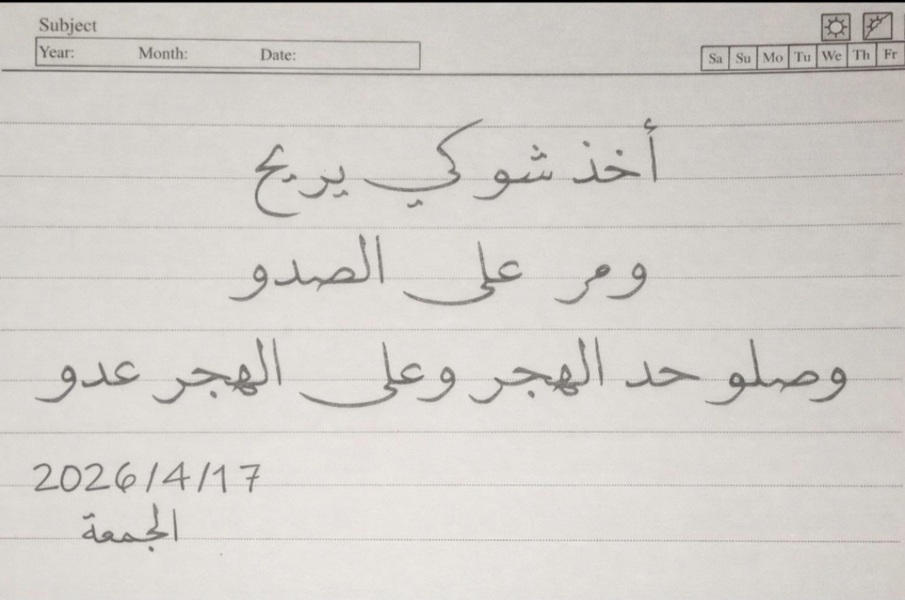 Subject
Year: Month: Date:
Sa Su Mo Tu We Th Fr
أخذ شو كي يريح
و مر على الصدو
وصلو حد الهجر وعلى الهجر عدو
2026/4/17
الجمعة